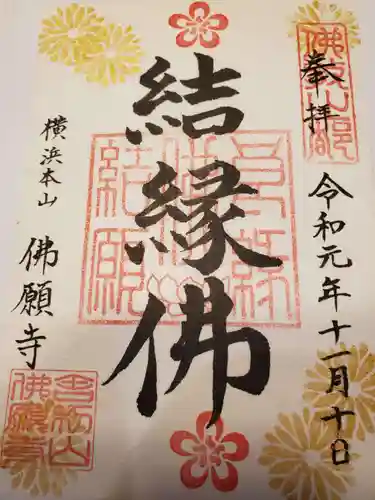 奉拝
令和元年十一月十日
結縁佛
横浜本山
佛願寺